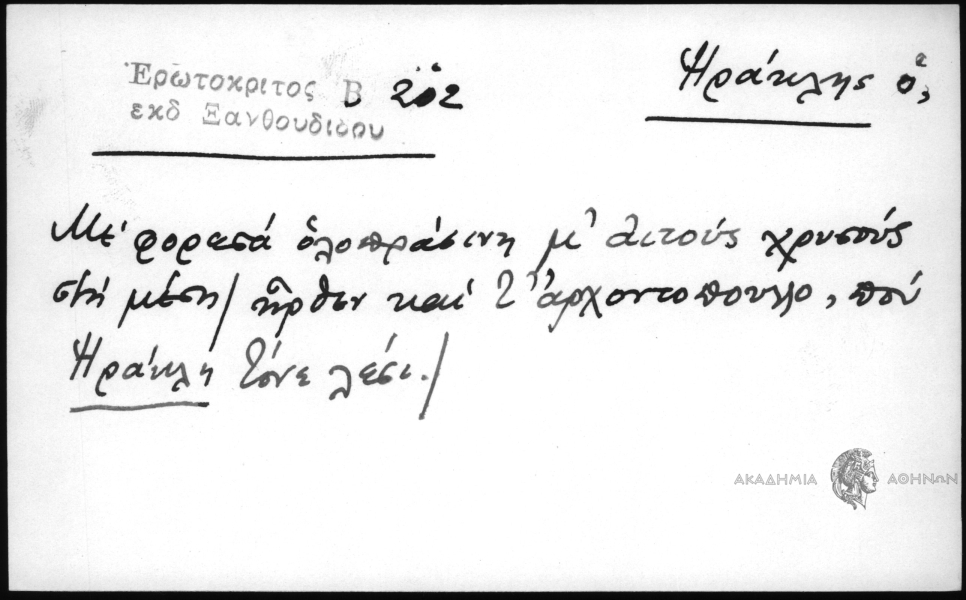 Ἐρωτοκριτος Β 202
εκδ Ξανθουδιδου
Ἡράκλης ὁ,
Μέ φορεσά ὁλοπράσινη μ' ἀιτούς χρυσούς
στή μέση/ ἦρθεν καί τ' ἀρχοντοπουλλο, πού
Ἡράκλη τόνε λέσι./
ΑΚΑΔΗΜΙΑ ΑΘΗΝΩΝ